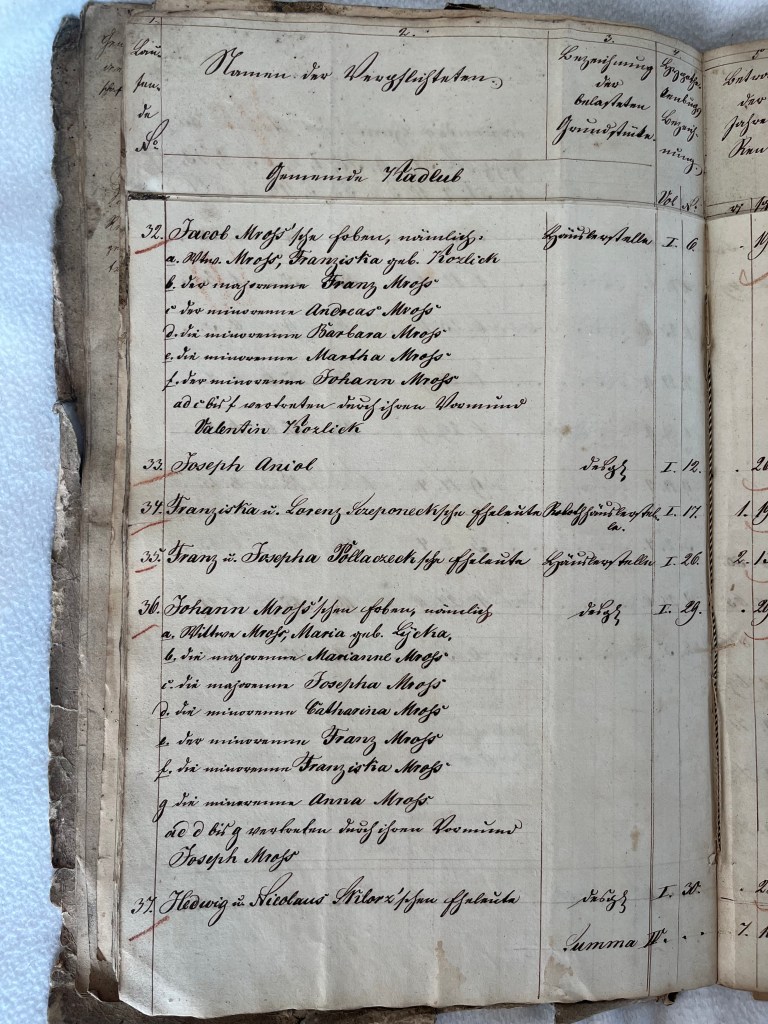 1. 2. 3. 4. 5
Lau-
fen-
de
No.
Namen der Verpflichteten.
Bezeichnung
der
belasteten
Grundstücke.
Hypothe-
kenbuchs
Bezeich-
nung.
Vol No.
Betra
der
Jahre
Ren
Gemeinde Kadlub
32. Jacob Mroß'sche Erben, nämlich: Häuslerstelle I. 6.
a. Wtw. Mroß, Franziska geb. Kozlick
b. der majorenne Franz Mroß
c der minorenne Andreas Mroß
d. die minorenne Barbara Mroß
e. die minorenne Martha Mroß
f. der minorenne Johann Mroß
ad c bis f vertreten durch ihren Vormund
Valentin Kozlick
33. Joseph Aniol desgl I. 12.
34. Franziska u. Lorenz Szeponeck'sche Eheleute I. 17. 1.
35. Franz u. Josepha Pollaczeck'sche Eheleute Häuslerstelle I. 26. 2.
36. Johann Mroß'schen Erben, nämlich desgl I. 29.
a. Wittwe Mroß, Maria geb.
b. die majorenne Marianne Mroß
c. die majorenne Josepha Mroß
d. die minorenne Catharina Mroß
e. der minorenne Franz Mroß
f. die minorenne Franziska Mroß
g die minorenne Anna Mroß
ad d bis g vertreten durch ihren Vormund
Joseph Mroß
37. Hedwig u. Nicolaus Skilorz'schen Eheleute desgl I. 30.
Summa IV. 7.